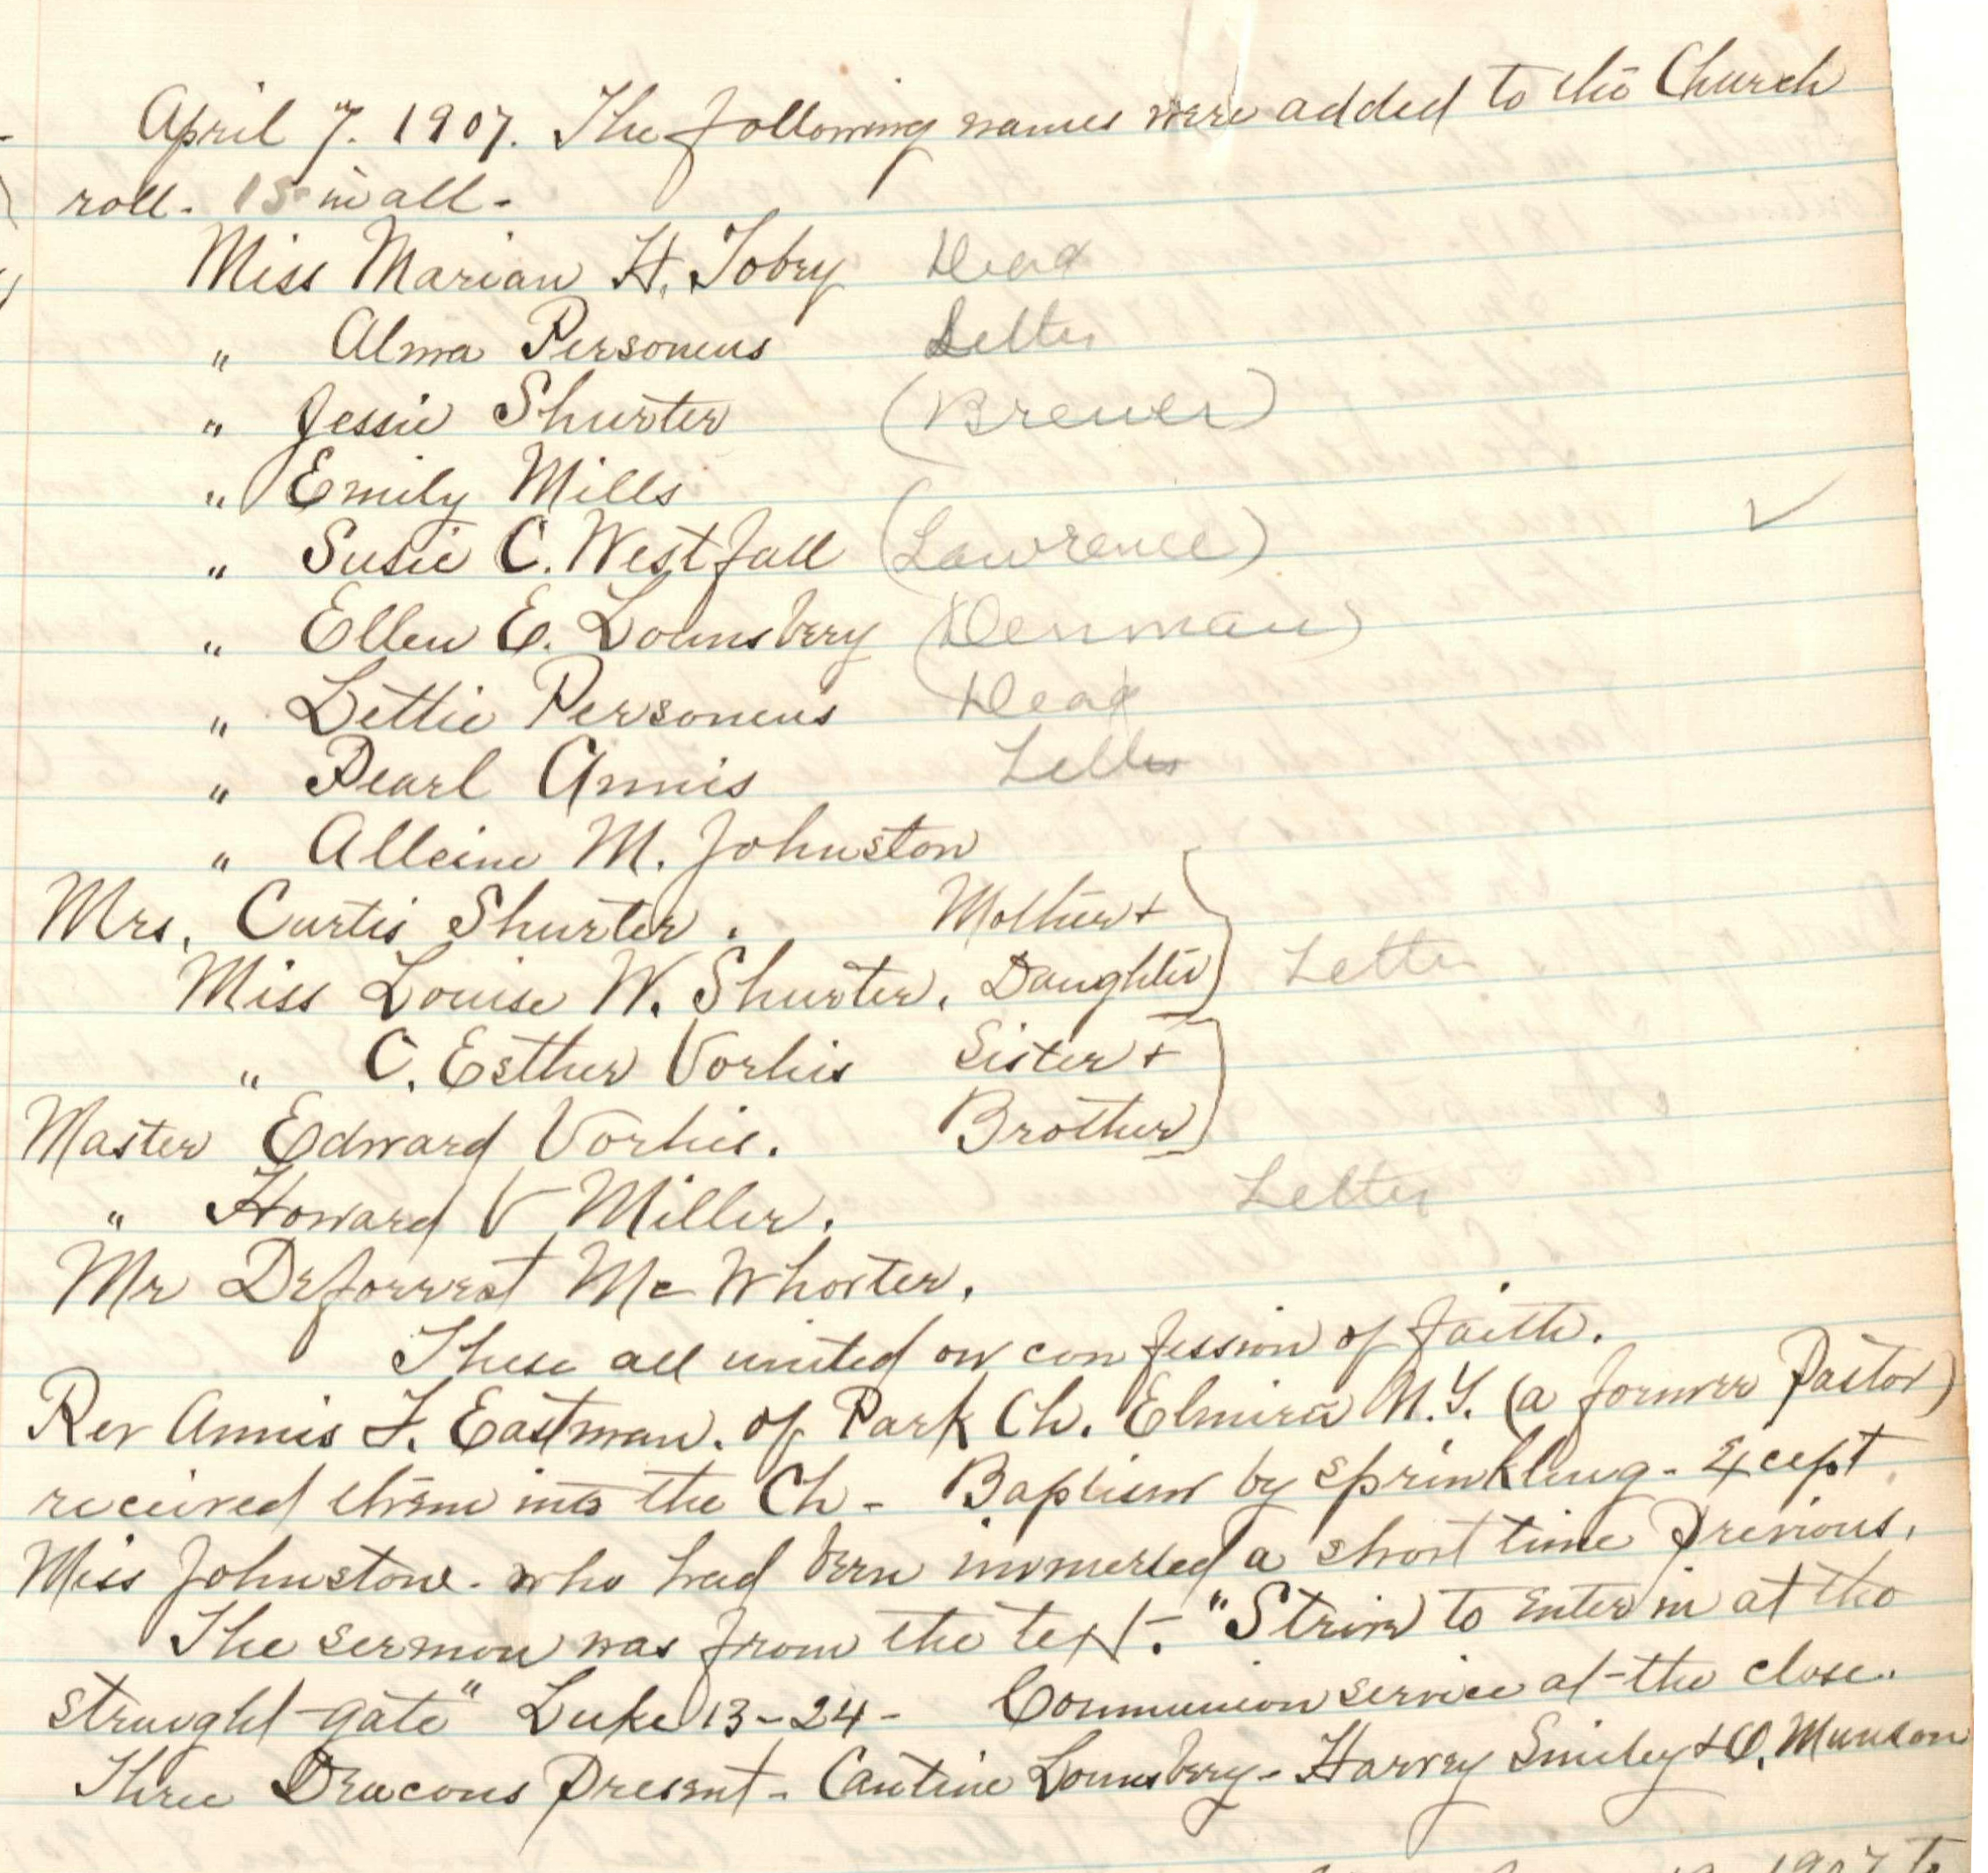 April 7. 1907. The following names were added to the Church
roll. 15 in all -
Miss Marian H. Tobey Dead
" Alma Personeus Letter
" Jessie Shurter (Brewer)
" Emily Mills
" Susie C. Westfall (Lawrence) ✓
" Ellen E. Lounsbery (Denman)
" Lettie Personeus Dead
" Pearl Annis Letter
" Alleine M. Johnston
Mrs. Curtis Shurter. Mother +
Miss Louise W. Shurter. Daughter Letter
" C. Esther Vorhis Sister +
Master Edward Vorhis. Brother
" Howard V Miller. Letter
Mr Deforrest Mc Whorter.
These all united on confession of faith.
Rev Annis F. Eastman. of Park Ch. Elmira N.Y. (a former Pastor)
received them into the Ch - Baptism by sprinkling - Except
Miss Johnstone - who had been immersed a short time previous.
The sermon was from the text. "Strive to enter in at the
straight gate" Luke 13-24 - Communion service at the close.
Three Deacons Present - Cantine Lounsbery - Harvey Smiley + O. Munson
1907 to